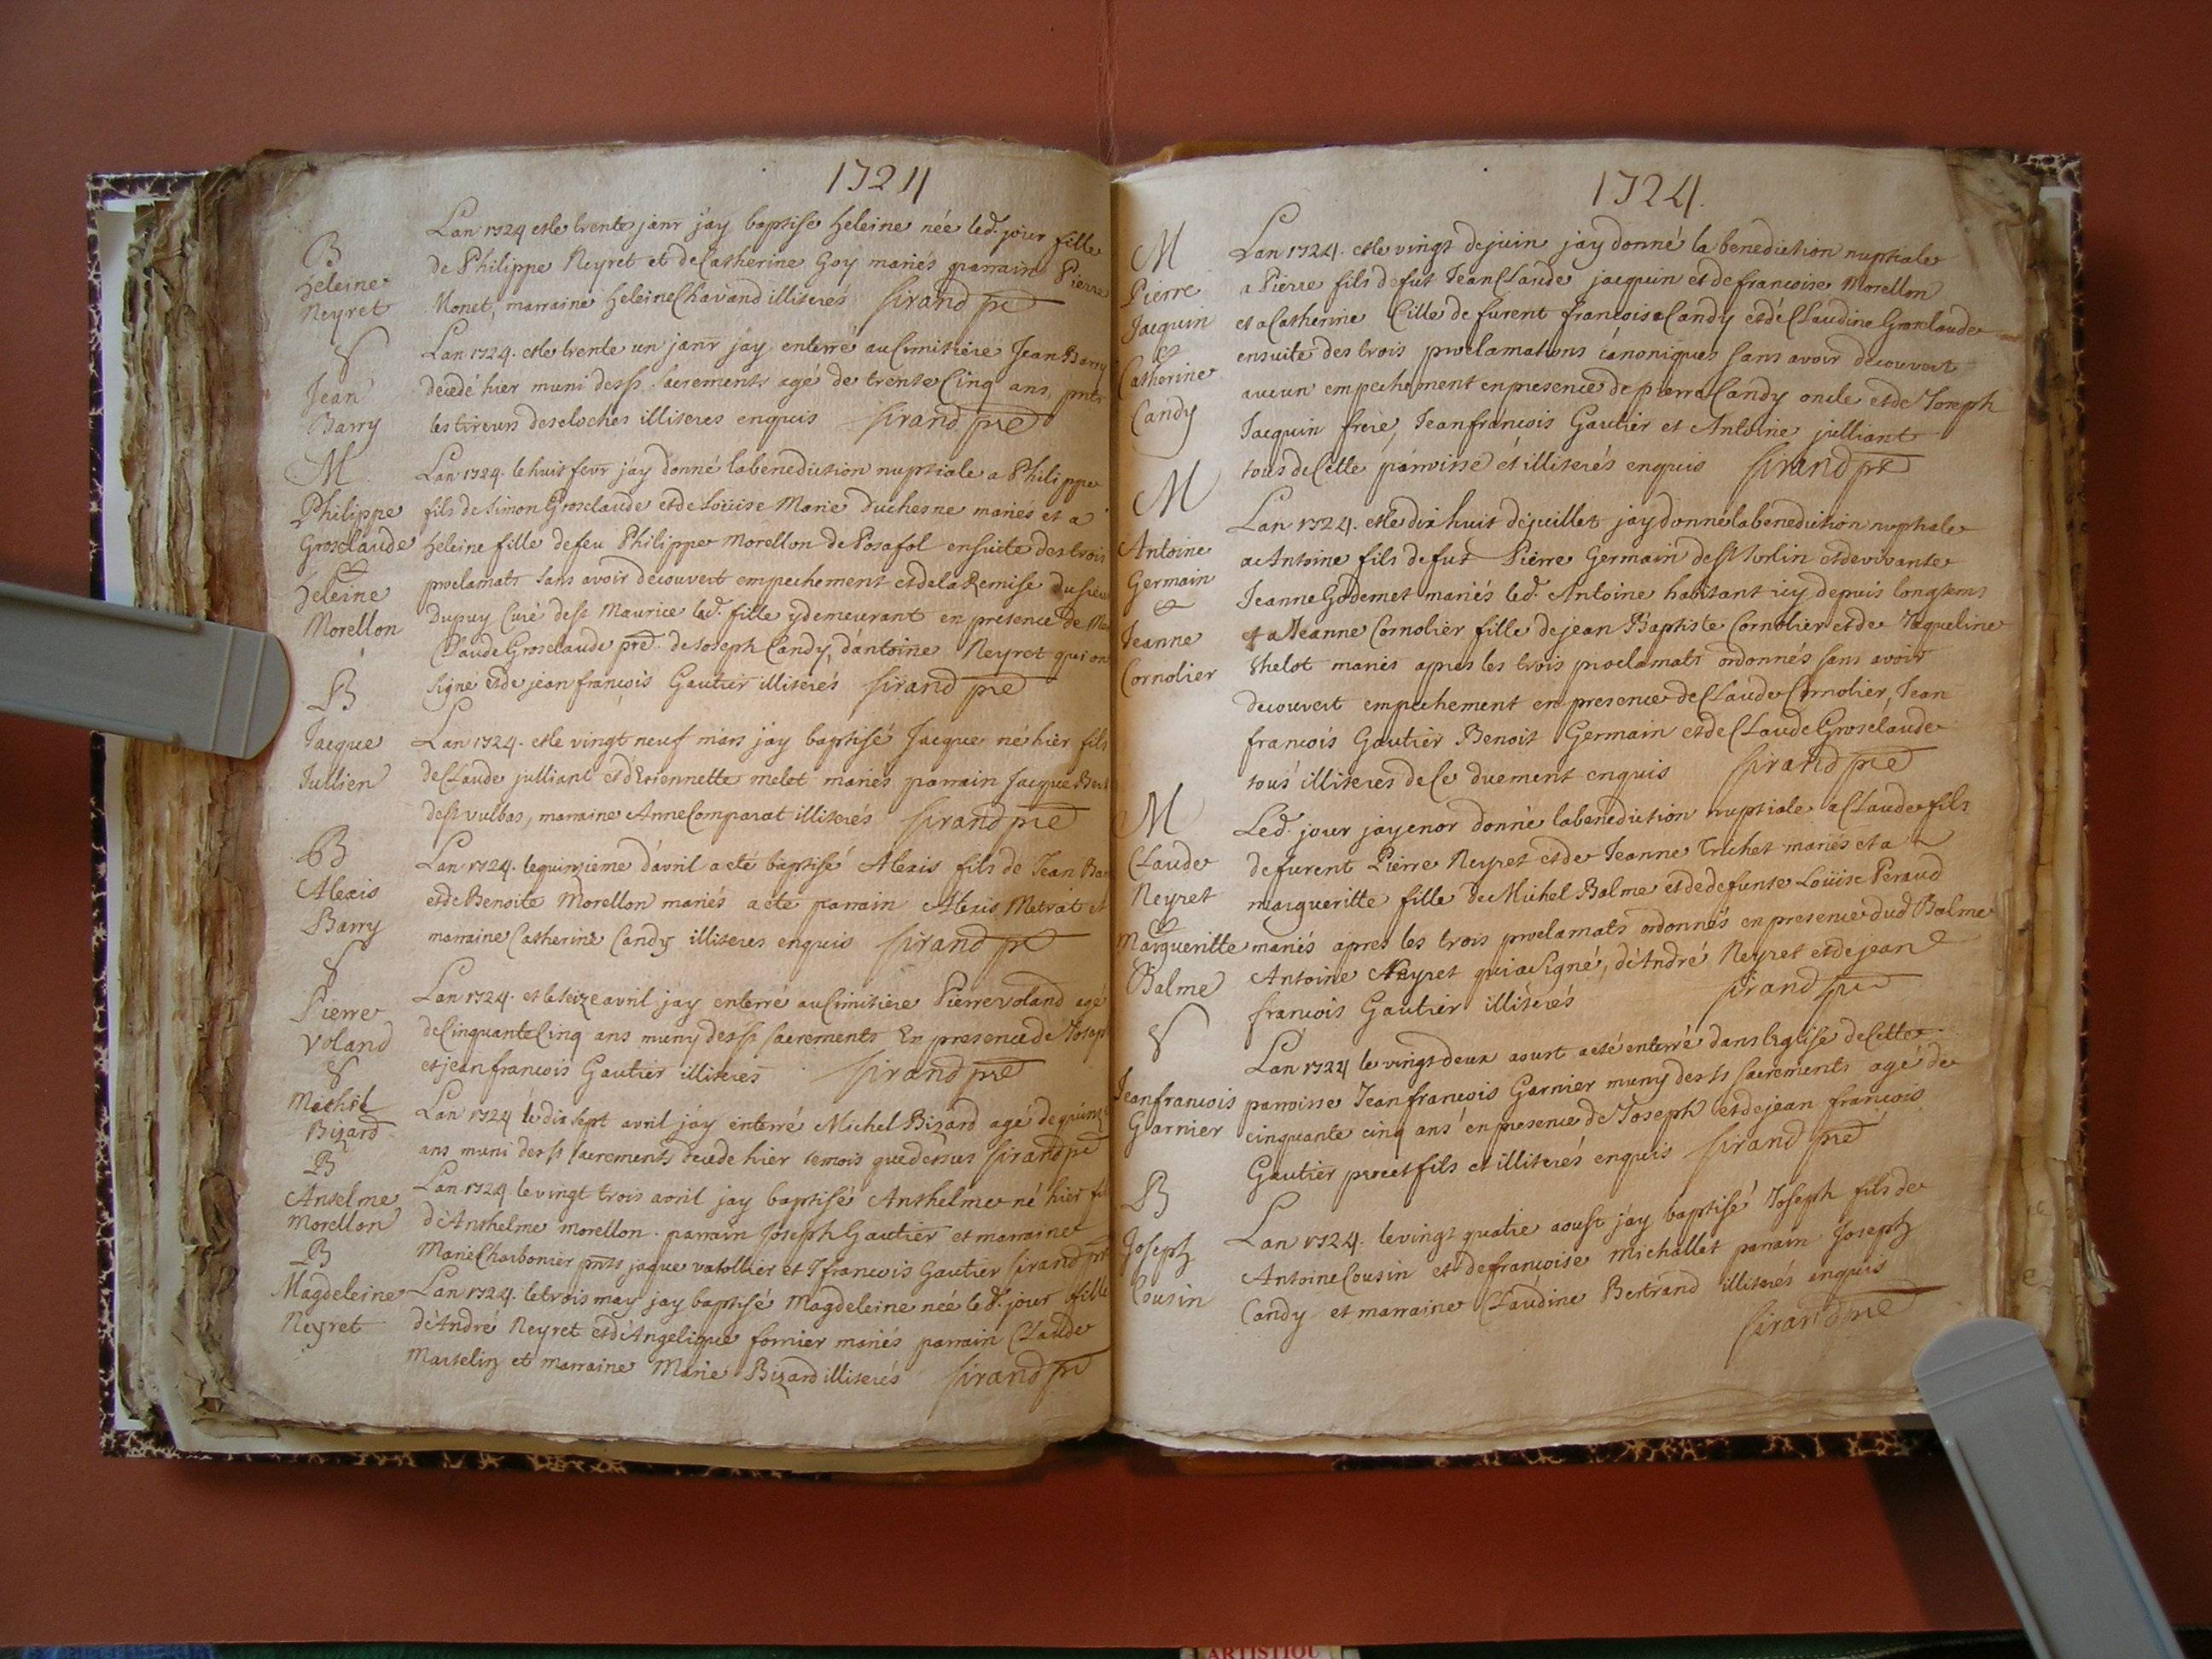 1724
B
Heleine
Neyret
Lan 1724 et le trente janr jay baptisé heleine née led. jour fille
de Philippe Neyret et de Catherine Goy mariés parrain Pierre
Monet, marraine heleine Chavand illiterés Sirand pre
S
Jean
Barry
Lan 1724. et le trente un janr jay enterré au Cimitiere Jean Barry
decedé hier muni des ss. sacrements agé de trente Cinq ans, pnts
les tireurs des cloches illiteres enquis Sirand pre
M
Philippe
Grosclaude
&
héleine
Morellon
Lan 1724. le huit fevr jay donné la benediction nuptiale a Philippe
fils de Simon Grosclaude et de Loüise Marie Duchesne mariés et a
heleine fille de feu Philippe Morellon de Posafol ensuite des trois
proclamats sans avoir decouvert empechement et de la Remise du sieur
Dupuy Curé de st Maurice lad. fille y demeurant en presence de
Claude Grosclaude pre. de Joseph Candy, dantoine Neyret qui on
signé et de jean francois Gautier illiterés Sirand pre
B
Jacque
Jullien
Lan 1724. et le vingt neuf mars jay baptisé Jacque né hier fils
de Claude julliant et d'Etiennette melot mariés parrain Jacque
de st vulbas, marraine Anne Comparat illiterés Sirand pre
B
Alexis
Barry
Lan 1724. le quinzieme d'avril a eté baptisé Alexis fils de Jean
et de Benoite Morellon mariés a eté parrain Alexis Metrat et
marraine Catherine Candy illiteres enquis Sirand pre
S
Pierre
Voland
Lan 1724. et le seize avril jay enterré au Cimitiere Pierre Voland agé
de Cinquante Cinq ans muny des ss sacrements En presence de Joseph
et jean francois Gautier illiteres Sirand pre
S
Michel
Bizard
Lan 1724 le dix sept avril jay enterré Michel Bizard agé de quinze
ans muni des ss sacrements decede hier temois que dessus Sirand pre
B
Anselme
Morellon
Lan 1724 le vingt trois avril jay baptisé Anthelme né hier fils
d'Anthelme morellon. parrain Joseph Gautier et marraine
Marie Charbonier pnts jaque vatollier et J francois Gautier Sirand pre
B
Magdeleine
Neyret
Lan 1724. le trois may jay baptisé Magdeleine née led. jour fille
d'André Neyret et d'Angelique fornier mariés parrain Claude
Martelin et marraine Marie Bizard illiterés Sirand pre
1724.
M
Pierre
Jacquin
&
Catherine
Candy
Lan 1724. et le vingt de juin jay donné la benediction nuptiale
a Pierre fils de fut Jean Claude jacquin et de francoise Morellon
et a Catherine fille de furent francois Candy et de Claudine Grosclaude
ensuite des trois proclamations canoniques sans avoir decouvert
aucun empechement en presence de pierre Candy oncle et de Joseph
Jacquin frere, Jean francois Gautier et Antoine julliant
tous de Cette parroisse et illiterés enquis Sirand pre
M
Antoine
Germain
&
Jeanne
Cornolier
Lan 1724. et le dix huit de juillet jay donné la benediction nuptiale
a Antoine fils de fut Pierre Germain de st Sorlin et de vivante
Jeanne Godemet mariés led. Antoine habitant icy depuis longtems
et a Jeanne Cornolier fille de jean Baptiste Cornolier et de Jaqueline
thelot mariés apres les trois proclamats ordonnés sans avoir
decouvert empechement en presence de Claude Cornolier, Jean
francois Gautier Benoit Germain et de Claude Grosclaude
tous illiteres de Ce duement enquis Sirand pre
M
Claude
Neyret
&
Margueritte
Balme
Led. jour jay encor donné la benediction nuptiale a Claude fils
de furent Pierre Neyret et de Jeanne Trichet mariés et a
margueritte fille de Michel Balme et de defunte Loüise Peraud
mariés apres les trois proclamats ordonnés en presence dud Balme
Antoine Neyret qui a signé, d'André Neyret et de jean
francois Gautier illiterés Sirand pre
S
Jean francois
Garnier
Lan 1724 le vingt deux aoust a eté enterré dans l'Eglise de Cette
parroisse Jean francois Garnier muny des ss sacrements agé de
cinquante cinq ans en presence de Joseph et de jean francois
Gautier pere et fils et illiterés enquis Sirand pre
B
Joseph
Cousin
Lan 1724. le vingt quatre aoust jay baptisé Joseph fils de
Antoine Cousin et de francoise Michallet parrain Joseph
Candy et marraine Claudine Bertrand illiterés enquis
Sirand pre
ARTISTIQU